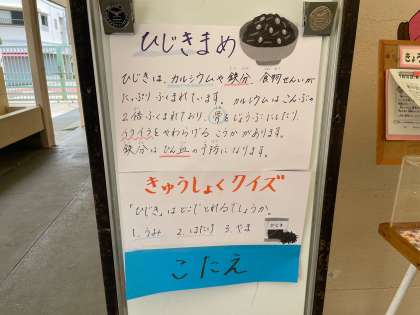 ひじきまめ
ひじきは、カルシウムや鉄分、食物せんいが
たっぷりふくまれています。カルシウムはこんぶの
2倍ふくまれており、骨をじょうぶにしたり、
イライラをやわらげるこうかがあります。
鉄分はひん血の予防になります。
きゅうしょくクイズ
「ひじき」はどこでとれるでしょうか。
1.うみ 2.はたけ 3.やま
ひじき
こたえ
きゅう